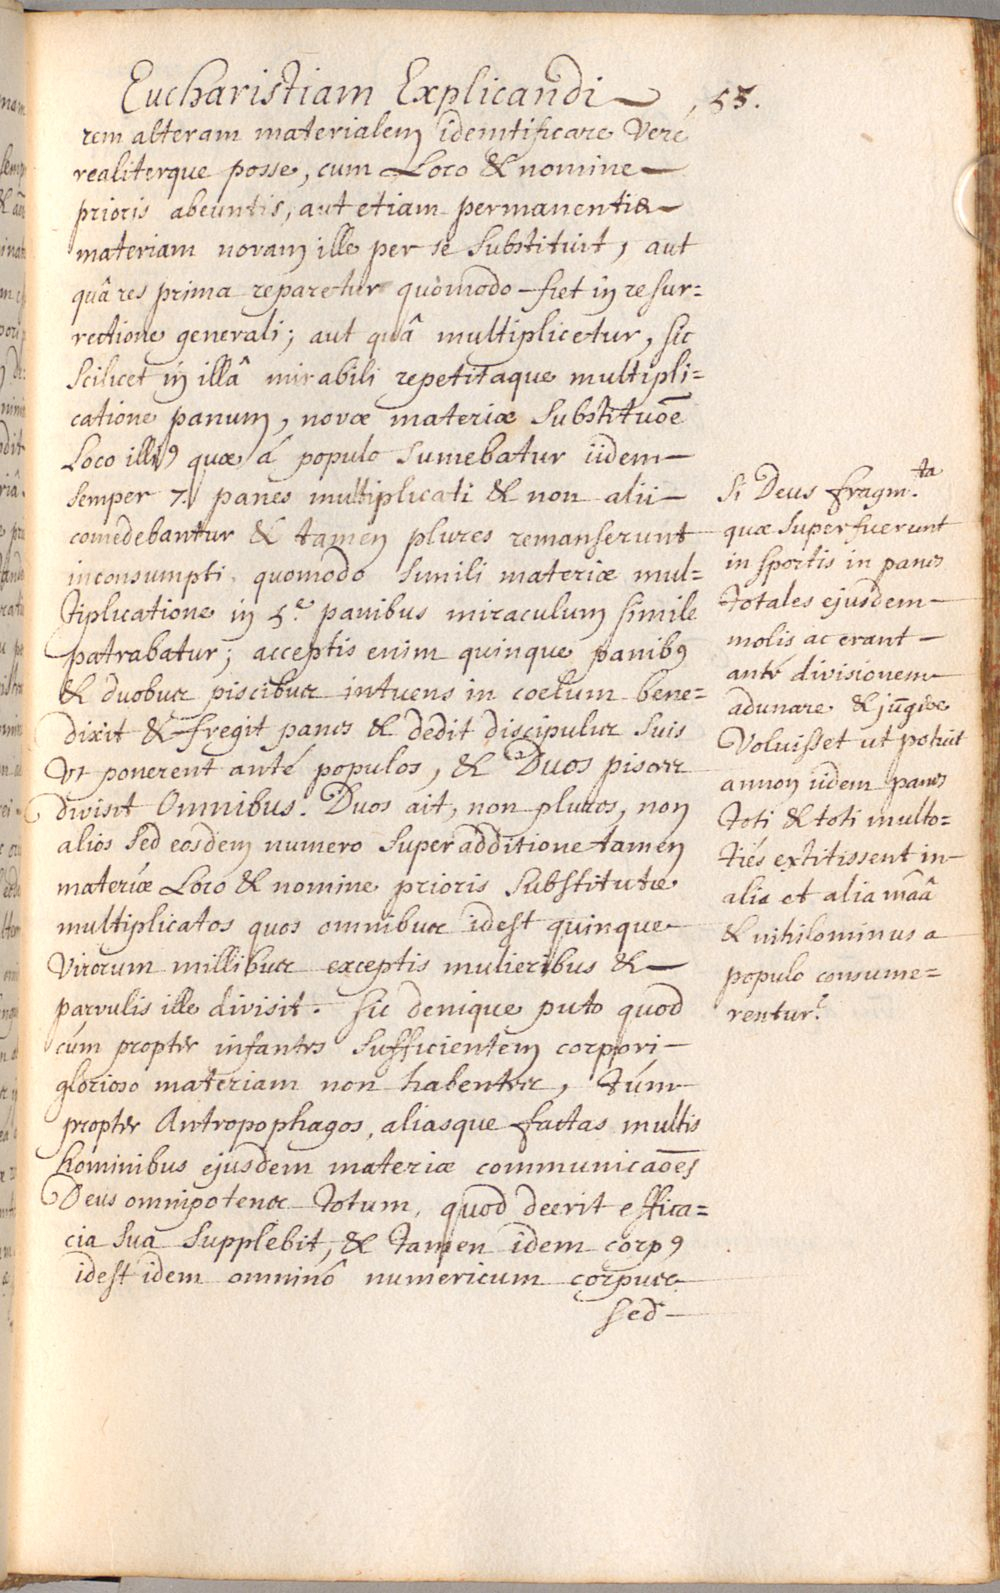 Eucharistiam Explicandi 55.
rem alteram materialem idemtificare veré
realiterque posse, cum Loco & nomine
prioris abeuntis, aut etiam permanentis
materiam novam ille per se substituit, aut
quâ res prima reparetur quomodo fiet in resur=
rectione generali; aut quâ multiplicetur, sic
scilicet in illâ mirabili repetitaque multipli=
catione panum, novæ materiæ substituõe
Loco illiꝰ quæ á populo sumebatur iidem
semper 7. panes multiplicati & non alii
comedebantur & tamen plures remanserunt
inconsumpti, quomodo simili materiæ mul=
tiplicatione in 5.e panibus miraculum simile
patrabatur; acceptis enim quinque panibꝰ
& duobus piscibus intuens in coelum bene=
dixit & fregit panes & dedit discipulis suis
Vt ponerent anté populos, & Duos pisces
divisit Omnibus. Duos ait, non plures, non
alios sed eosdem numero superadditione tamen
materiæ Loco & nomine prioris substitutæ
multiplicatos quos omnibus idest quinque
Virorum millibus exceptis mulieribus &
parvulis ille divisit. sic denique puto quod
cúm propter infantes sufficientem corpori
glorioso materiam non habentes, túm
propter Antropophagos, aliasque factas multis
hominibus ejusdem materiæ communicaões
Deus omnipotens totum, quod deerit effica=
cia sua supplebit, & tamen idem corpꝰ
idest idem omninô numericum corpus
sed
si Deus fragm.ta
quæ superfuerunt
in sportis in panes
totales ejusdem
molis ac erant
anté divisionem
adunare & jũgere
Voluisset ut potuit
annon iidem panes
toti & toti multo=
tiés extitissent in
alia et alia mãâ
& nihilominus a
populo consume=
rentur?